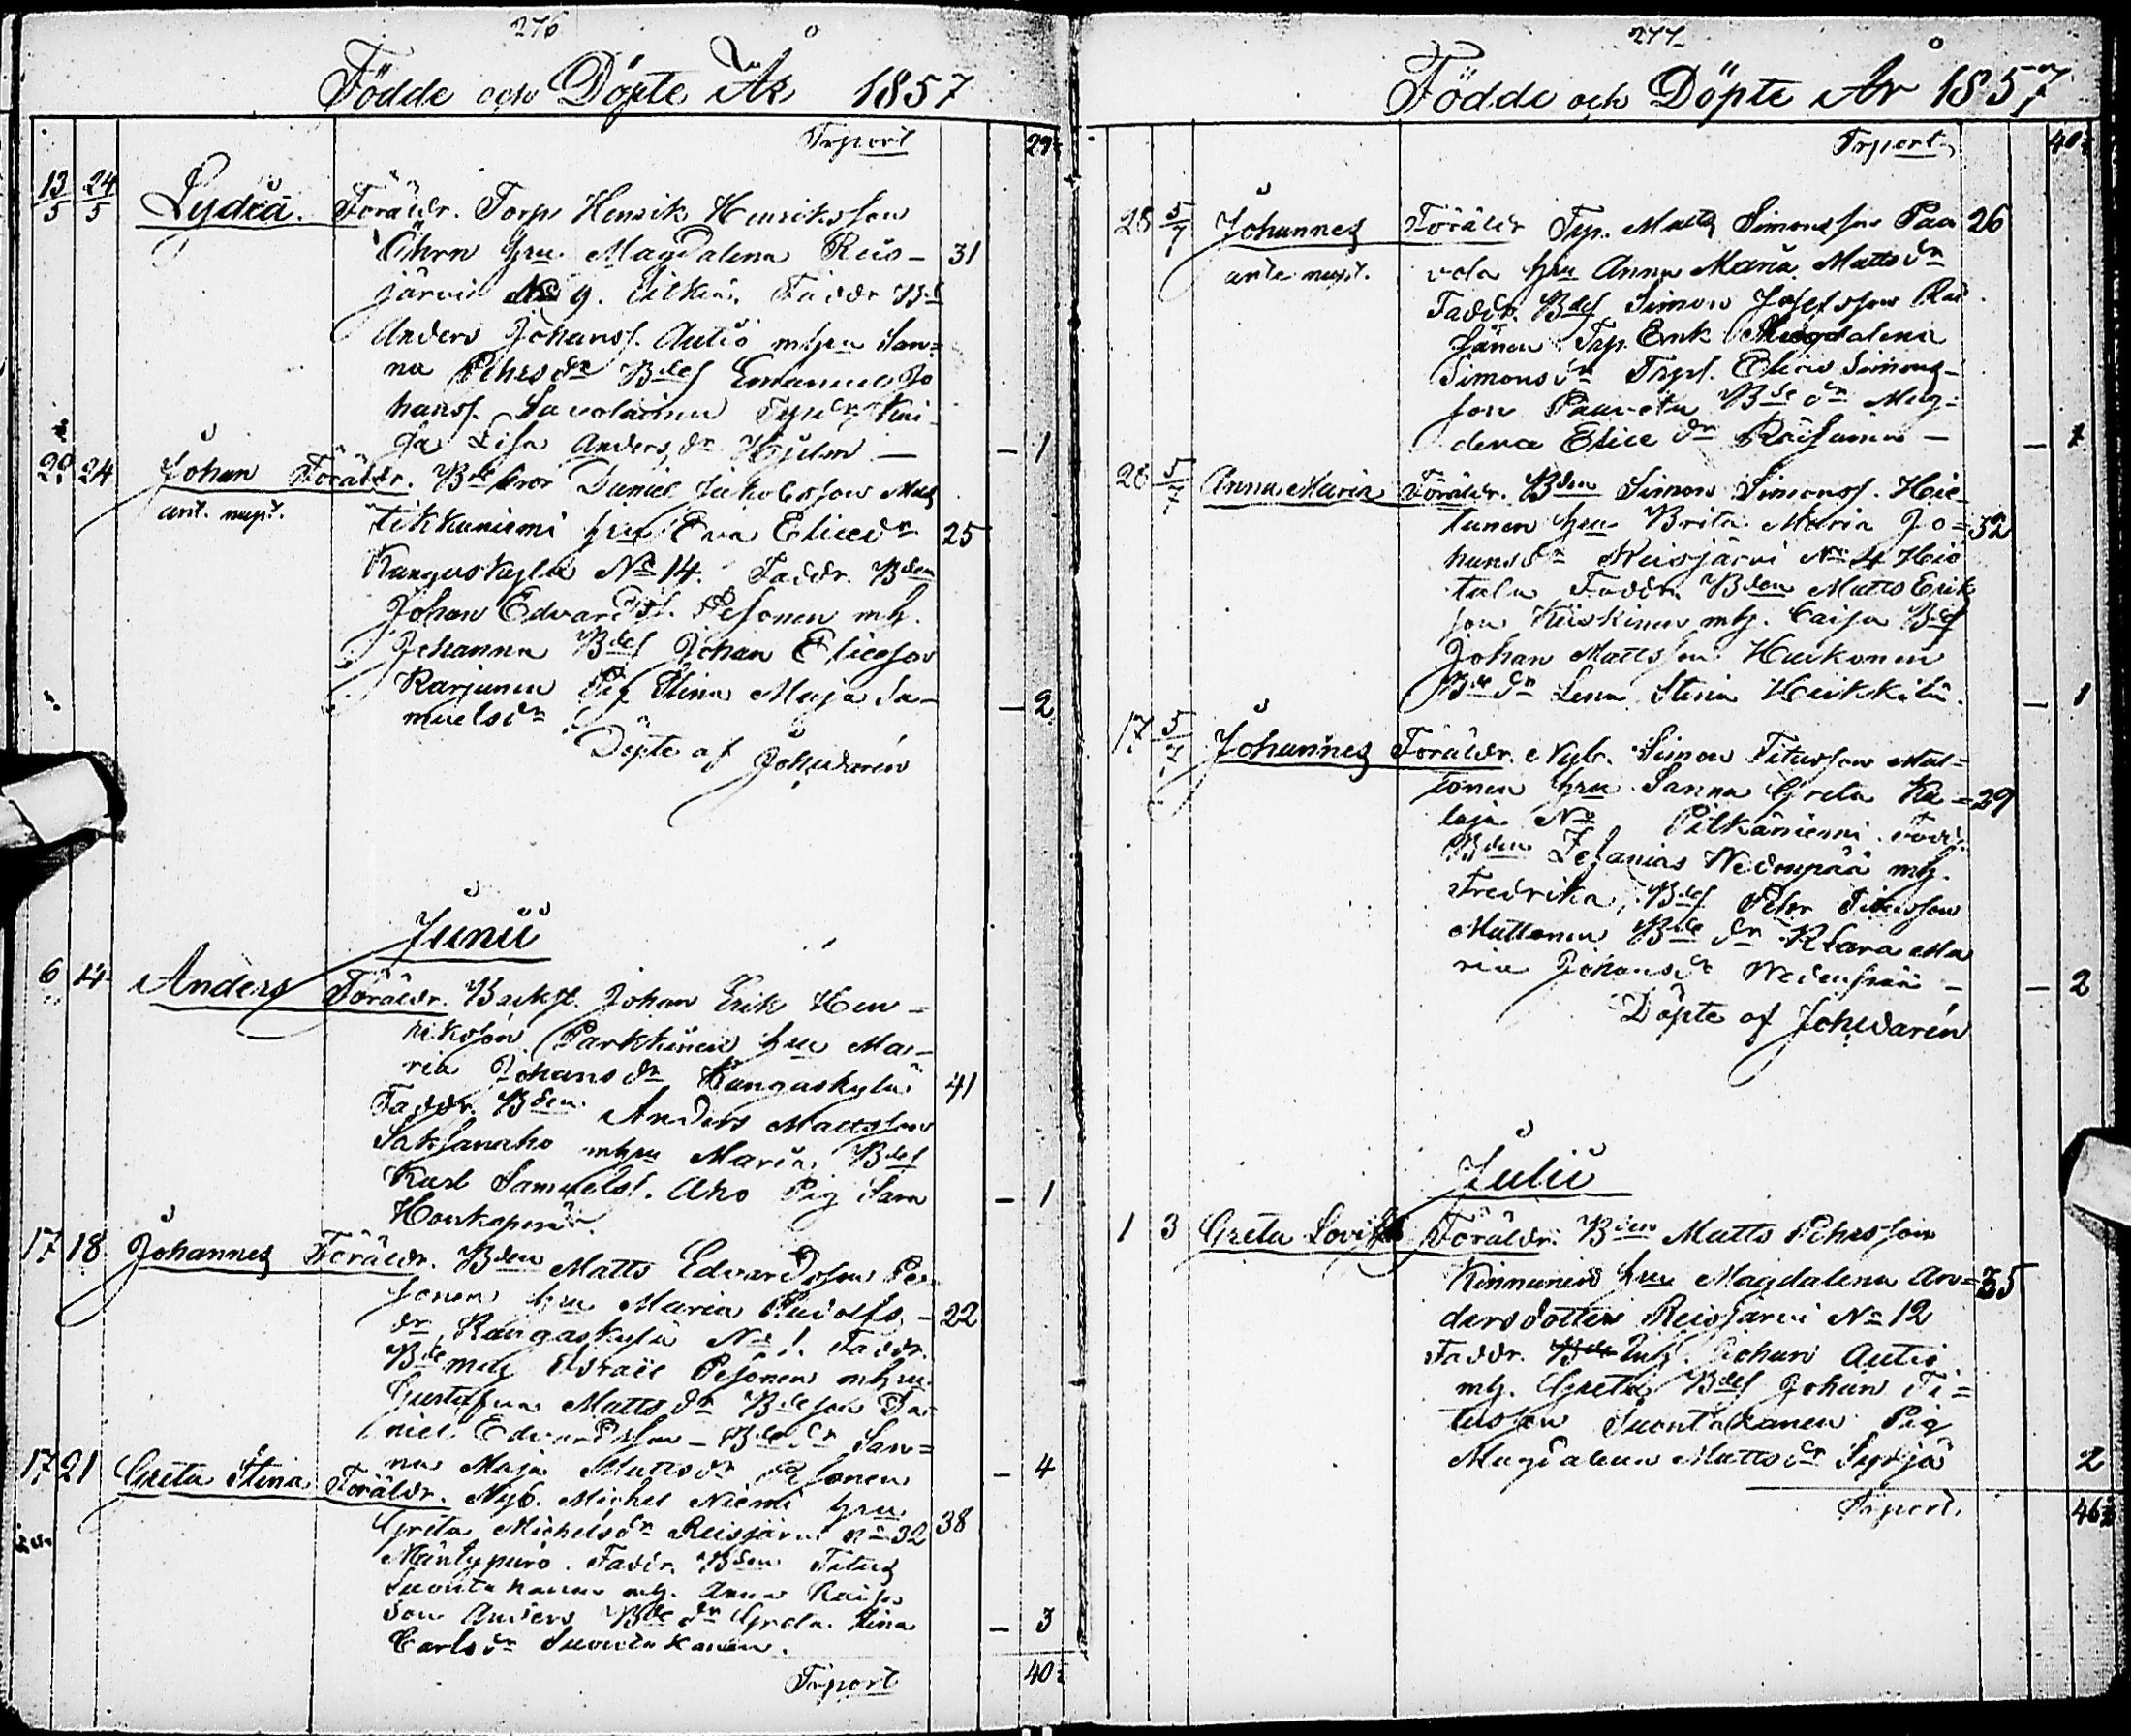 276
Födde och Döpte År 1857
Trsport 29
13/5 24/5 Lydia. Föräldr. Torp. Henrik Henriksson
hru Magdalena Reis- 31
järvi No 9. Faddr
Anders Johanss. Autio mhru San-
na Pehrsdr Bdes Emanuel Jo
hanss. Savolainen
Lisa Andersdr Hjelm — — 1
29 24 Johan Föräldr. Bdebror Daniel Jakobsson Mat
ant. nupt. tikkaniemi hru Eva Eliaedr 25
Kangaskylä No 14. Faddr. Bden
Johan Edvardss. Pesonen mh.
Johanna Bdes Johan Eliasson
Karjunen Pig Stina Maja Sa-
muelsdr — 2
Döpte af Johudarén
Junii
6 14 Anders Föräldr. Backst. Johan Erik Hen-
riksson Parkkinen hru Ma-
ria Johansdr Kangaskylä 41
Faddr. Bden Anders Mattsson
Saksanaho mhru Maria, Bdes
Karl Samuelss. Aho Pig Sara
Honkaperä — 1
17 18 Johannes Föräldr. Bden Matts Edvardsson Pe-
sonen hru Maria Rudolfs- 22
dr Kangaskylä No 1. Faddr.
Bde Israel Pesonen mhru
Gustafva Mattsdr Bdeson Da-
niel Edvardsson - Bdedr San-
na Maja Mattsdr Pesonen — 4
17 21 Greta Stina Föräldr. Nyb. Michel Niemi hru
Greta Michelsdr Reisjärvi No 32 38
Mäntypuro. Faddr. Bden Titus
Suontakanen mh. Anna
son Anders Bdedr Greta Stina — 3
Carlsdr Suontakanen.
Trsport 40
277
Födde och Döpte År 1857
Trsport 40
28 5/7 Johannes Föräldr Trp. Matts Simonsson Paa 26
ante nupt. vola hru Anna Maria Mattsdr
Faddr. Bdes Simon Josefsson Räi
sänen Trp. Erik Magdalena
Simonsdr Trps. Elias Simons-
son Paavola Bdedr Mag-
dena Eliaedr Räisänen — — 1
28 5/7 Anna Maria Föräldr. Bden Simon Simonss. Hie-
tanen hru Brita Maria Jo- 32
hansdr Reisjärvi No 4 Hie
tala Faddr. Bden Matts Erik
son Kiiskinen mh. Caisa Bdes
Johan Mattsson Huikonen
Bdedr Lena Stina Heikkilä. — 1
17 5/7 Johannes Föräldr. Nyb. Simon Titusson Mat-
tonen hru Sanna Greta Ka- 29
laja No Pitkäniemi. Fadd.
Bden Zefanias Wedenpää mh.
Fredrika, Bdes Pehr Titusson
Mattonen Bdedr Klara Ma
ria Johansdr Wedenpää — — 2
Döpte af Johudarén
Julii
1 3 Greta Lovisa Föräldr. Bden Matts Pehrsson
Kinnunen hru Magdalena An- 35
dersdotter Reisjärvi No 12
Faddr. Inh. Johan Autio
mh. Greta Bdes Johan Ti-
tusson Suontakanen Pig
Magdalena Mattsdr Syrjä 2
Trsport. 46